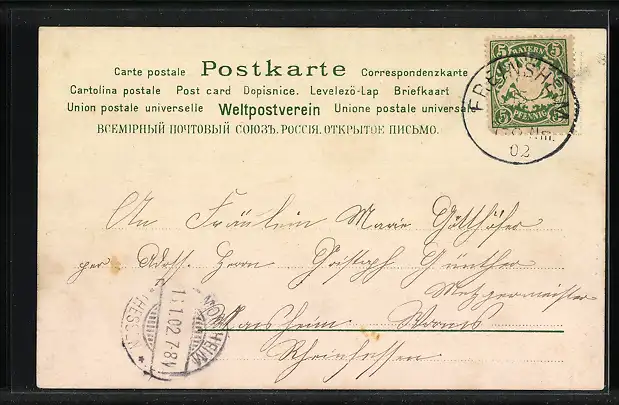 Carte postale Postkarte Correspondenzkarte
Cartolina postale Post card Dopisnice. Levelezö-Lap Briefkaart
Union postale universelle Weltpostverein Unione postale universale
ВСЕМІРНЫЙ ПОЧТОВЫЙ СОЮЗЪ. РОССІЯ. ОТКРЫТОЕ ПИСЬМО.
5 5
BAYERN
PFENNIG
5 5
02
An Fräulein Marie Götthöfer
per Adress. Herrn Cristoph Günther
Metzgermeister
Worms
Rheinhessen
(HESSEN)
1.1.02.7-8V